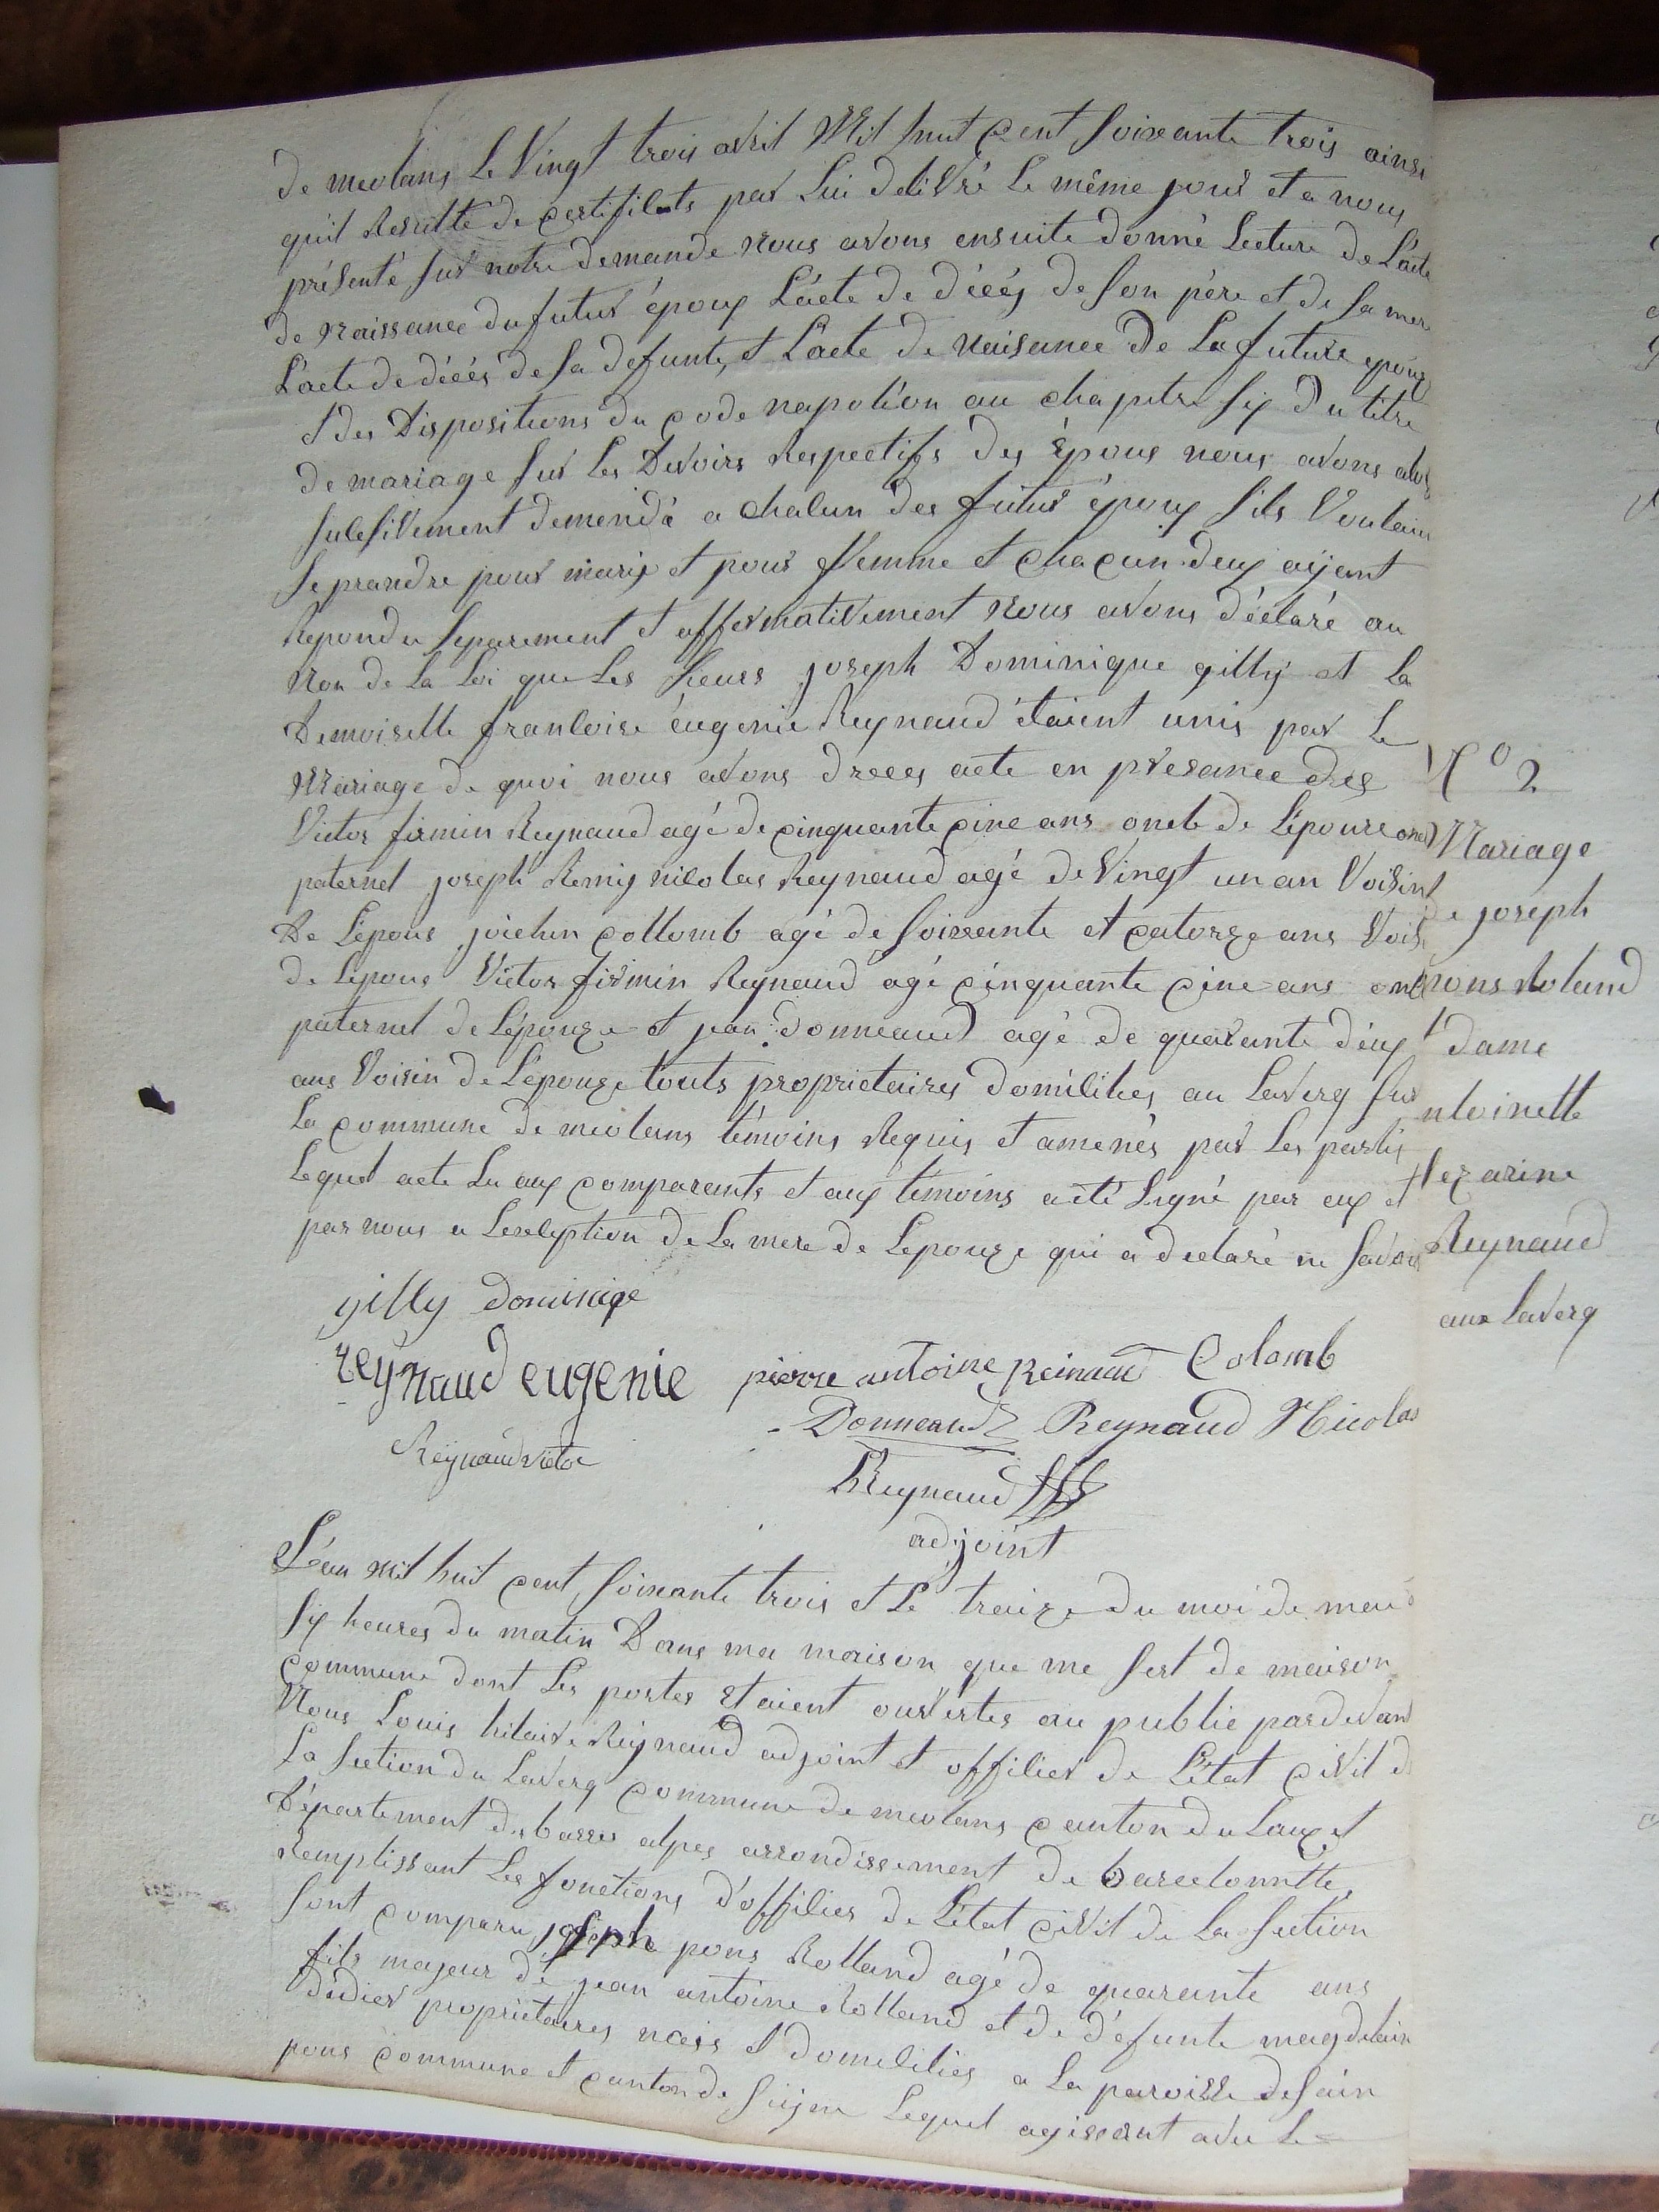 de meolans le Vingt trois avril Mil huit Cent soixante trois ainsi
qu'il Resulte de certificats par lui delivré le même jour et a nous
présenté sur notre demande nous avons ensuite donné lecture de l'acte
de naissance du futur époux l'acte de décés de son père et de sa mere
l'acte de décés de sa defunte, et l'acte de naisance de la future epouz
et des Dispositions du code napoléon au chapitre six du titre
de mariage sur les Devoirs Respectifs des Epoux nous avons
sulesivement demendé a chalun des futur époux sils Voulain
se prandre pour mari et pour femme et chacun deux aÿant
Repondu separement et affermativement nous avons déclaré au
Non de la loi que les sieurs joseph Dominique gilly et la
Demoiselle franloise éugenie Reynaud étaient unis par le
Mariage de quoi nous avons drees acte en presance des
Victor firmin Reynaud agé de cinquante cinc ans oncle de l'épouse
paternel joseph Remy nicolas Reynaud agé de Vingt un an Voisin
De l'épous joichin Collomb agé de soixante et catorze ans Vois
de l'épous Victor firmin Reynaud agé cinquante cinc ans oncl
paternel de l'épouze et jean donneaud agé de quarante déux
ans Voisin de l'épouze touts proprietaires domililiés au Laverq sur
la commune de méolans témoins Requis et amenés par les partis
lequel acte lu aux comparants et aux témoins a été signé par eux et
par nous a lexeleption de la mere de l'epouze qui a declaré ne savoir
gilly Dominique
reynaud eugenie pierre antoine Reinaud Colomb
Donneaud Reynaud Nicolas
Reynaud victor
Reynaud
adjoint
L'an mil huit cent soixante trois et le traize du moi de mai
six heures du matin Dans ma maison que me sert de maison
Commune dont les portes étaient ouvertes au public pardevan
Nous Louis hilaire Reynaud adjoint et offilier de l'Etat civil d
la section du Laverq Commune de meolans canton du Lauzet
Département des basses alpes arrondissement de barcelonnette,
Remplissant les fonctions d'offilier de l'état civil de la section
sont comparu joseph pons Rolland agé de quarante ans
fils majeur de jean antoine Rolland et de défunte magdelain
didier proprietaires nees et domililiés a la paroisse de sain
pons commune et canton de seijene lequel agissant avec le
N° 2
Mariage
de joseph
pons Roland
et dame
ntoinette
Reynaud
aux laverq